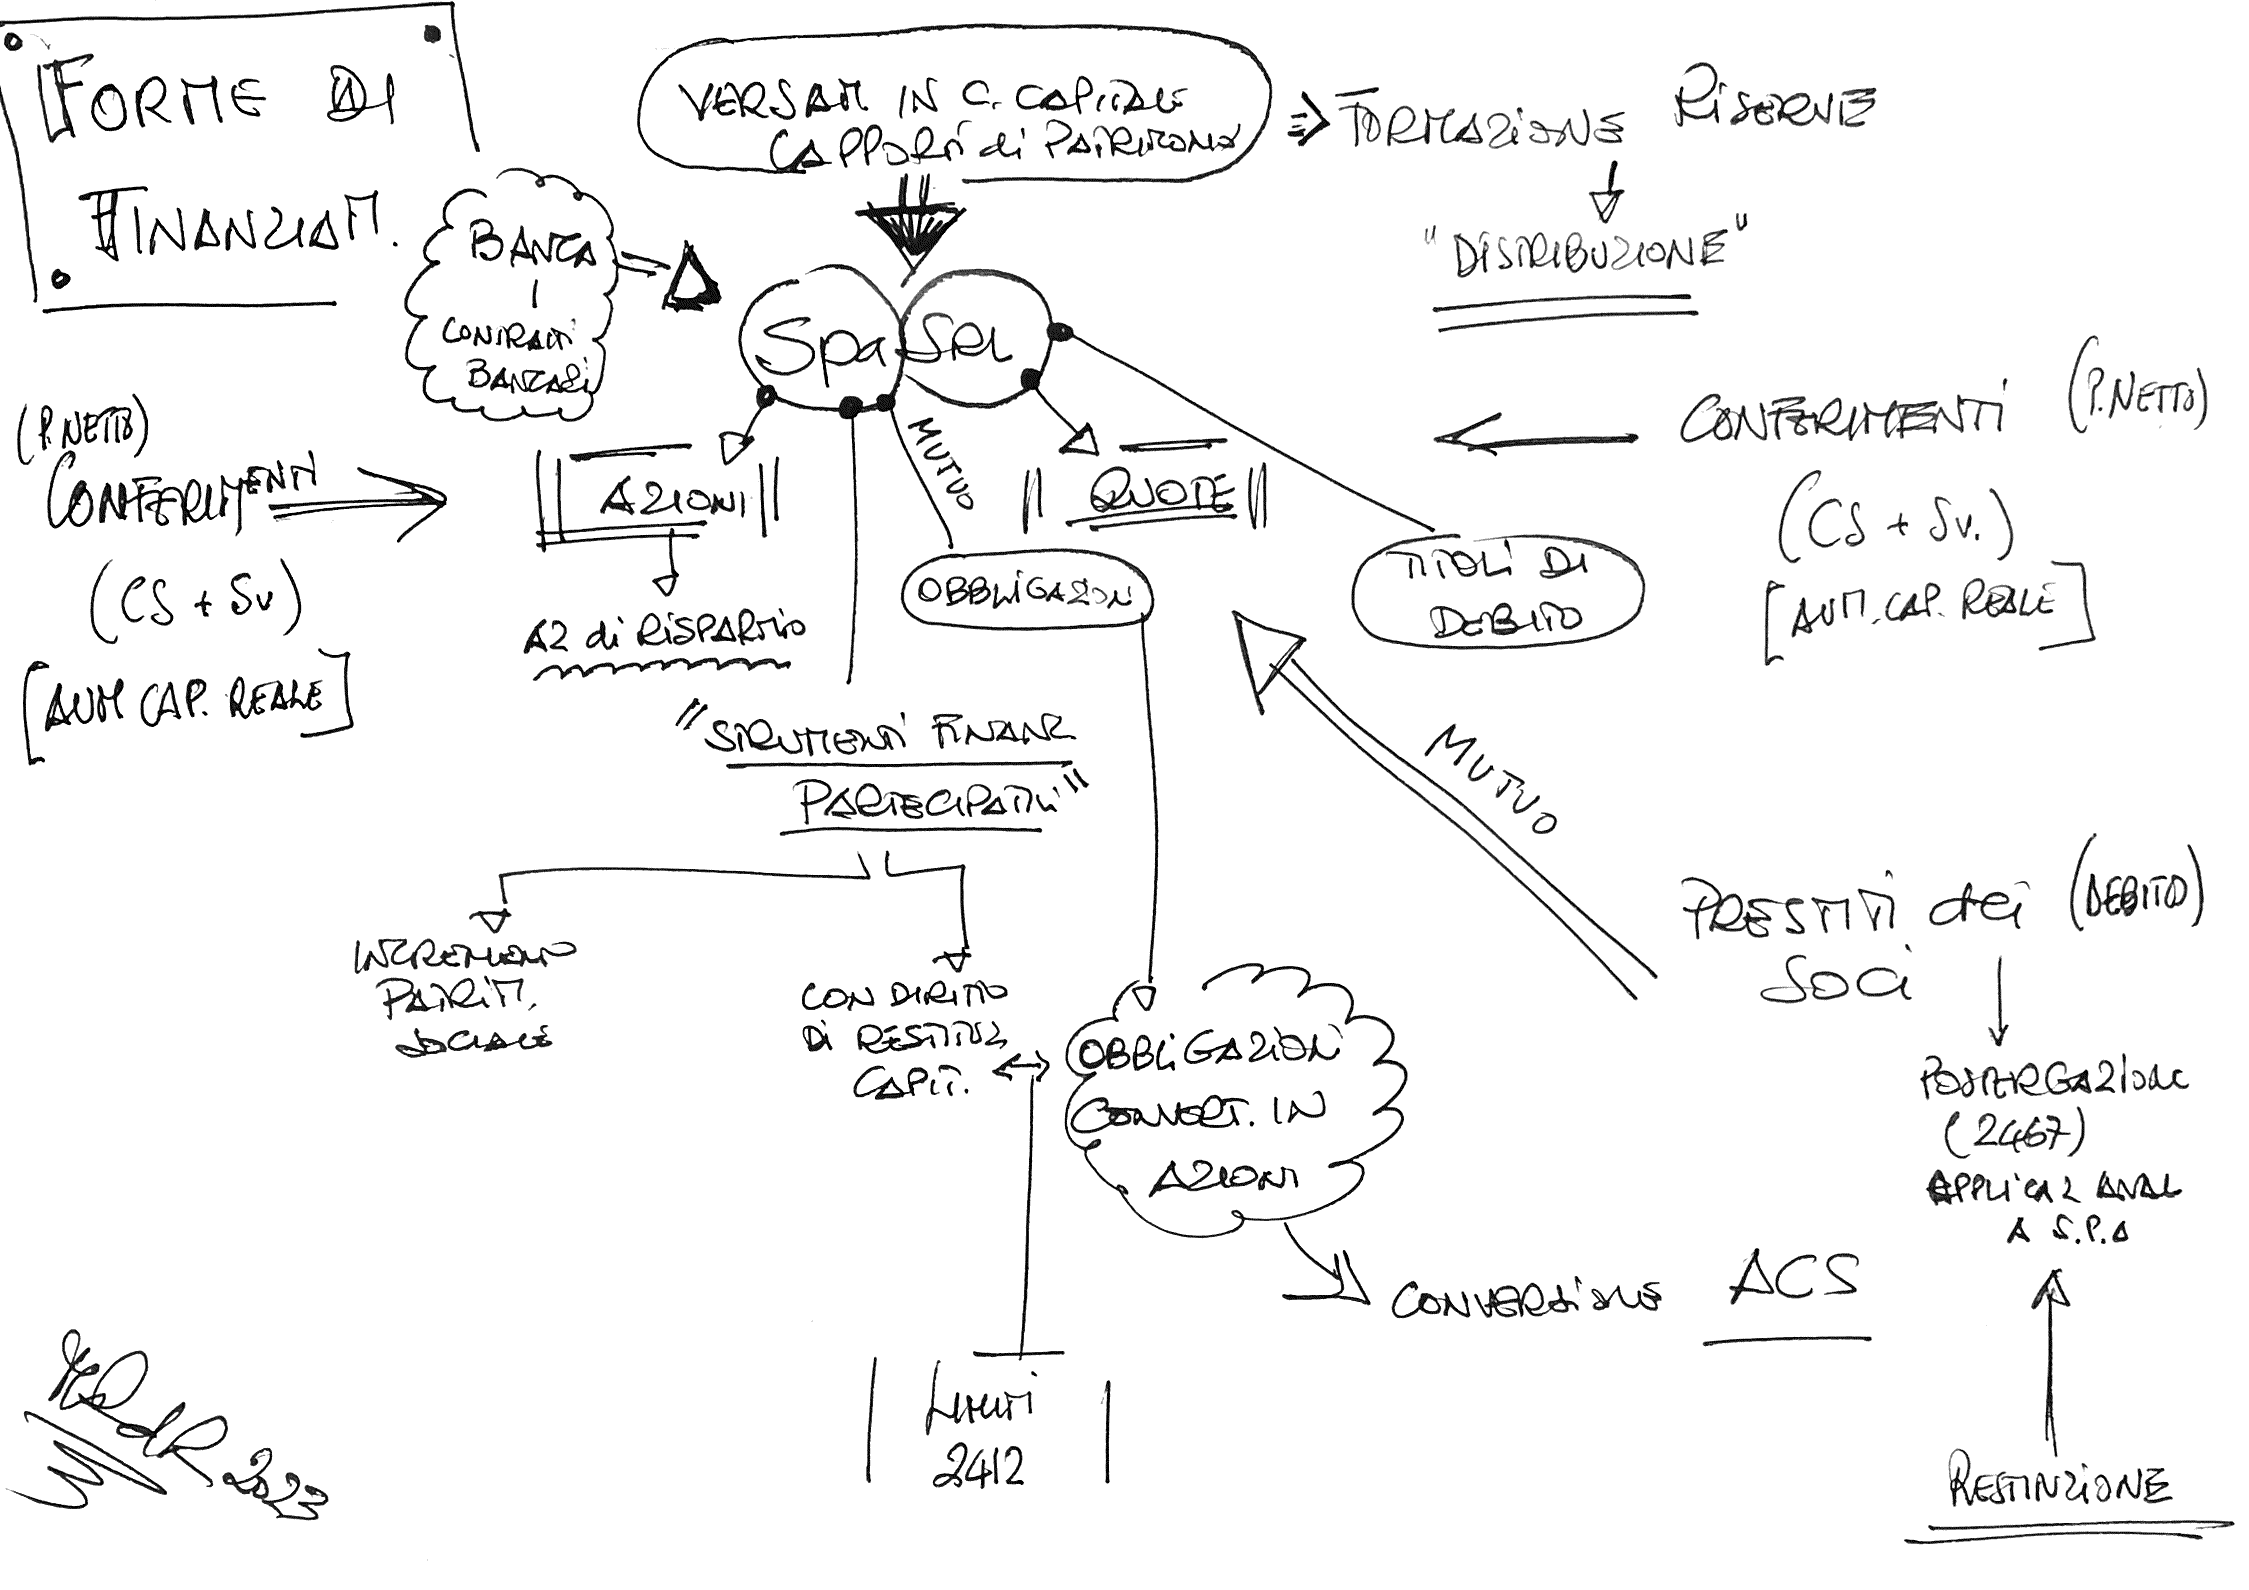 FORME DI
FINANZIAM.
VERSAM IN C. CAPITALE
(APPORTI di PATRIMONIO
FORMAZIONE RISERVE
"DISTRIBUZIONE"
BANCA
CONTRATTI
BANCARI
Spa
SRL
(P.NETTO)
CONFERIMENTI
(CS + Sv)
[AUM CAP. REALE]
AZIONI
AZ di RISPARMIO
MUTUO
QUOTE
OBBLIGAZION
TITOLI DI
DEBITO
CONFERIMENTI (P.NETTO)
(CS + Sv.)
[AUM. CAP. REALE]
"STRUMENTI FINANZ
PARTECIPATIVI"
INCREMENTO
PATRIM.
SOCIALE
CON DIRITTO
DI RESTITUZ
CAPIT.
OBBLIGAZIONI
CONVERT. IN
AZIONI
MUTUO
PRESTITI dei (DEBITO)
SOCI
POSTERGAZIONE
(2467)
APPLICAZ ANAL
A S.P.A
CONVERSIONE ACS
Limiti
2412
RESTITUZIONE
2023